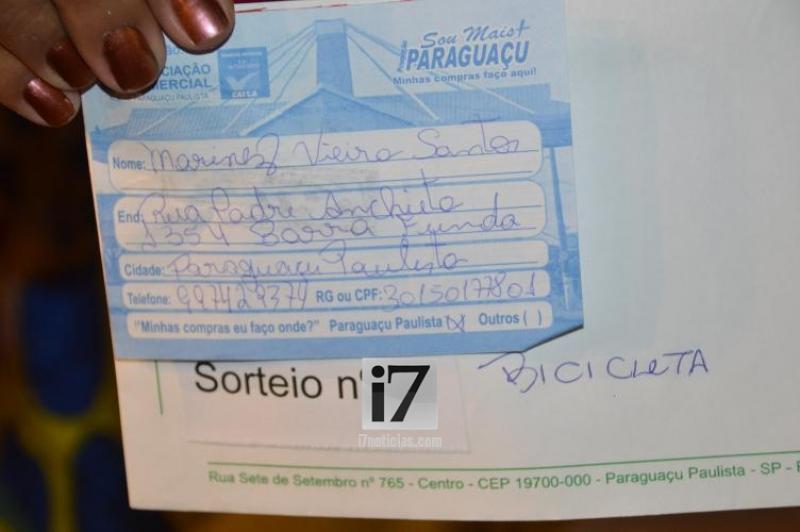 Sou Mais+
PARAGUAÇU
Minhas compras faço aqui!
CIAÇÃO
MERCIAL
PARAGUAÇU PAULISTA
CAIXA
Nome: Marinez Vieira Santos
End: Rua Padre Anchieta
1354 Barra Funda
Cidade: Paraguaçu Paulista
Telefone: 997429374 RG ou CPF: 30150177801
"Minhas compras eu faço onde?" Paraguaçu Paulista (X) Outros ( )
Sorteio nº
BICICLETA
i7
i7noticias.com
Rua Sete de Setembro nº 765 - Centro - CEP 19700-000 - Paraguaçu Paulista - SP -